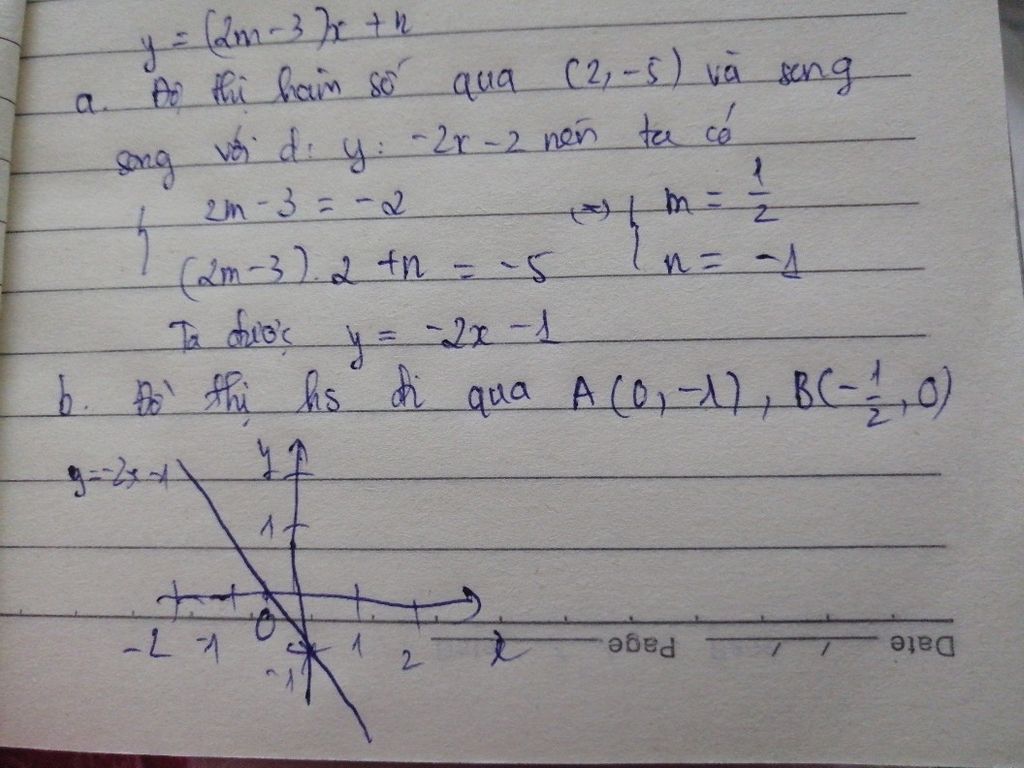 y = (2m-3)x + n
a. Đồ thị hàm số qua (2, -5) và song
song với d: y: -2x - 2 nên ta có
{ 2m - 3 = -2 <=> { m = 1/2
(2m-3).2 + n = -5 n = -1
Ta được y = -2x - 1
b. Đồ thị hs đi qua A(0, -1), B(-1/2, 0)
y=-2x-1 y
1
-2 -1 0 1 2 x
-1
Date / / Page